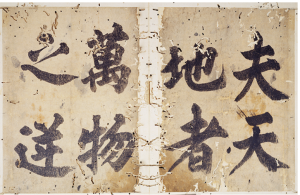 夫天
地者
萬物
之逆